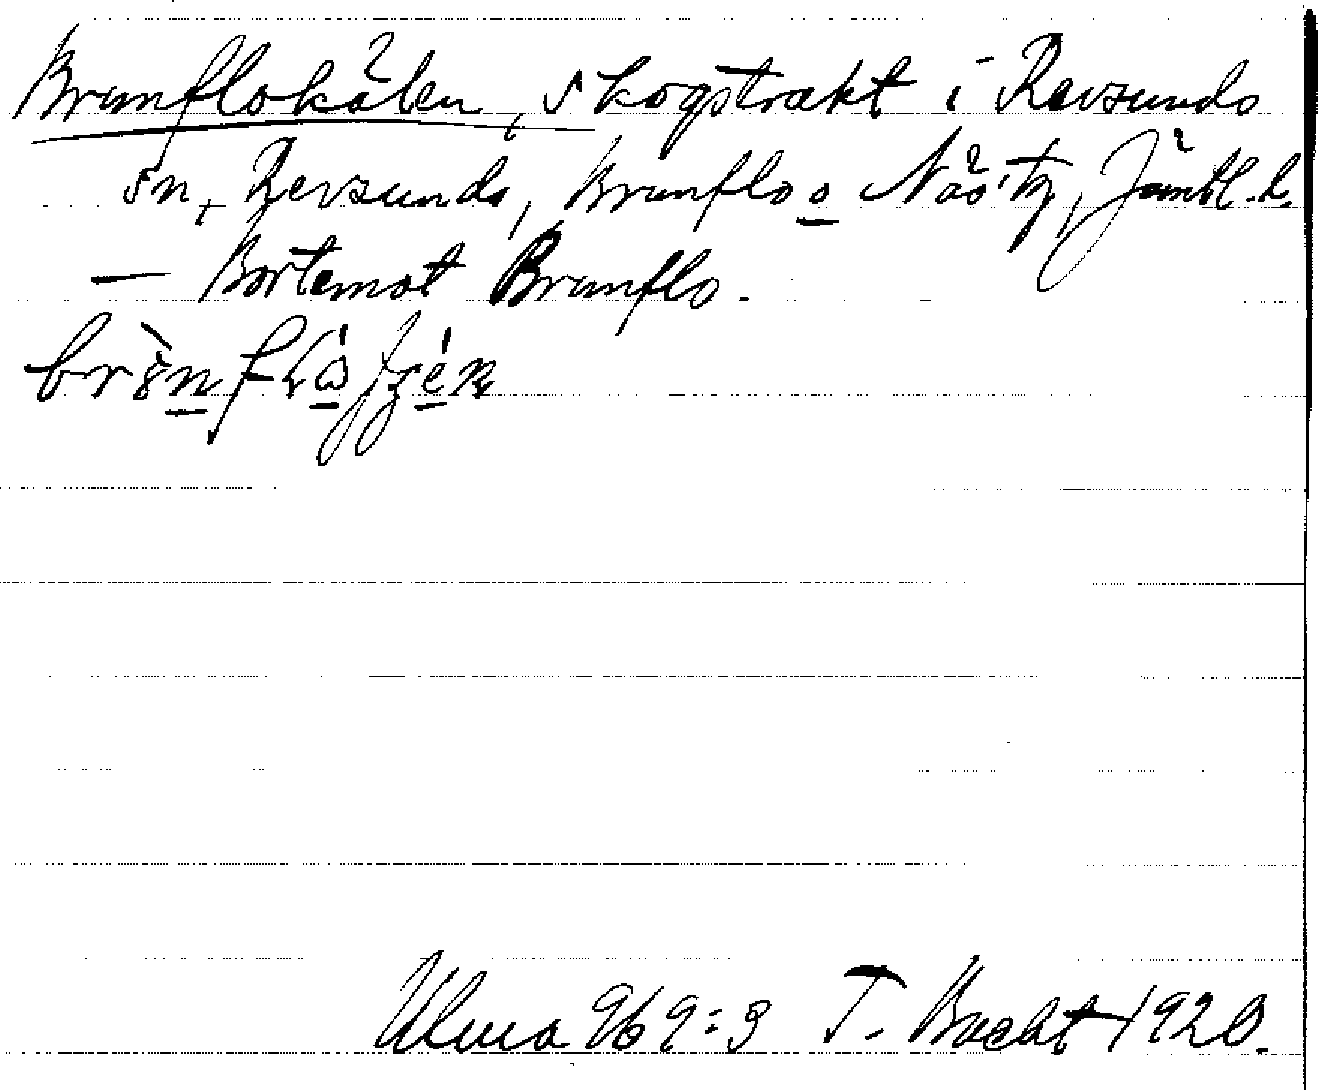 Brunflokälen, skogstrakt i Revsunds
sn, Revsunds, Brunflo o Näs tg, Jämtl. l.
— Bortemot Brunflo.
Ulma 969:3 T. Bucht 1920.